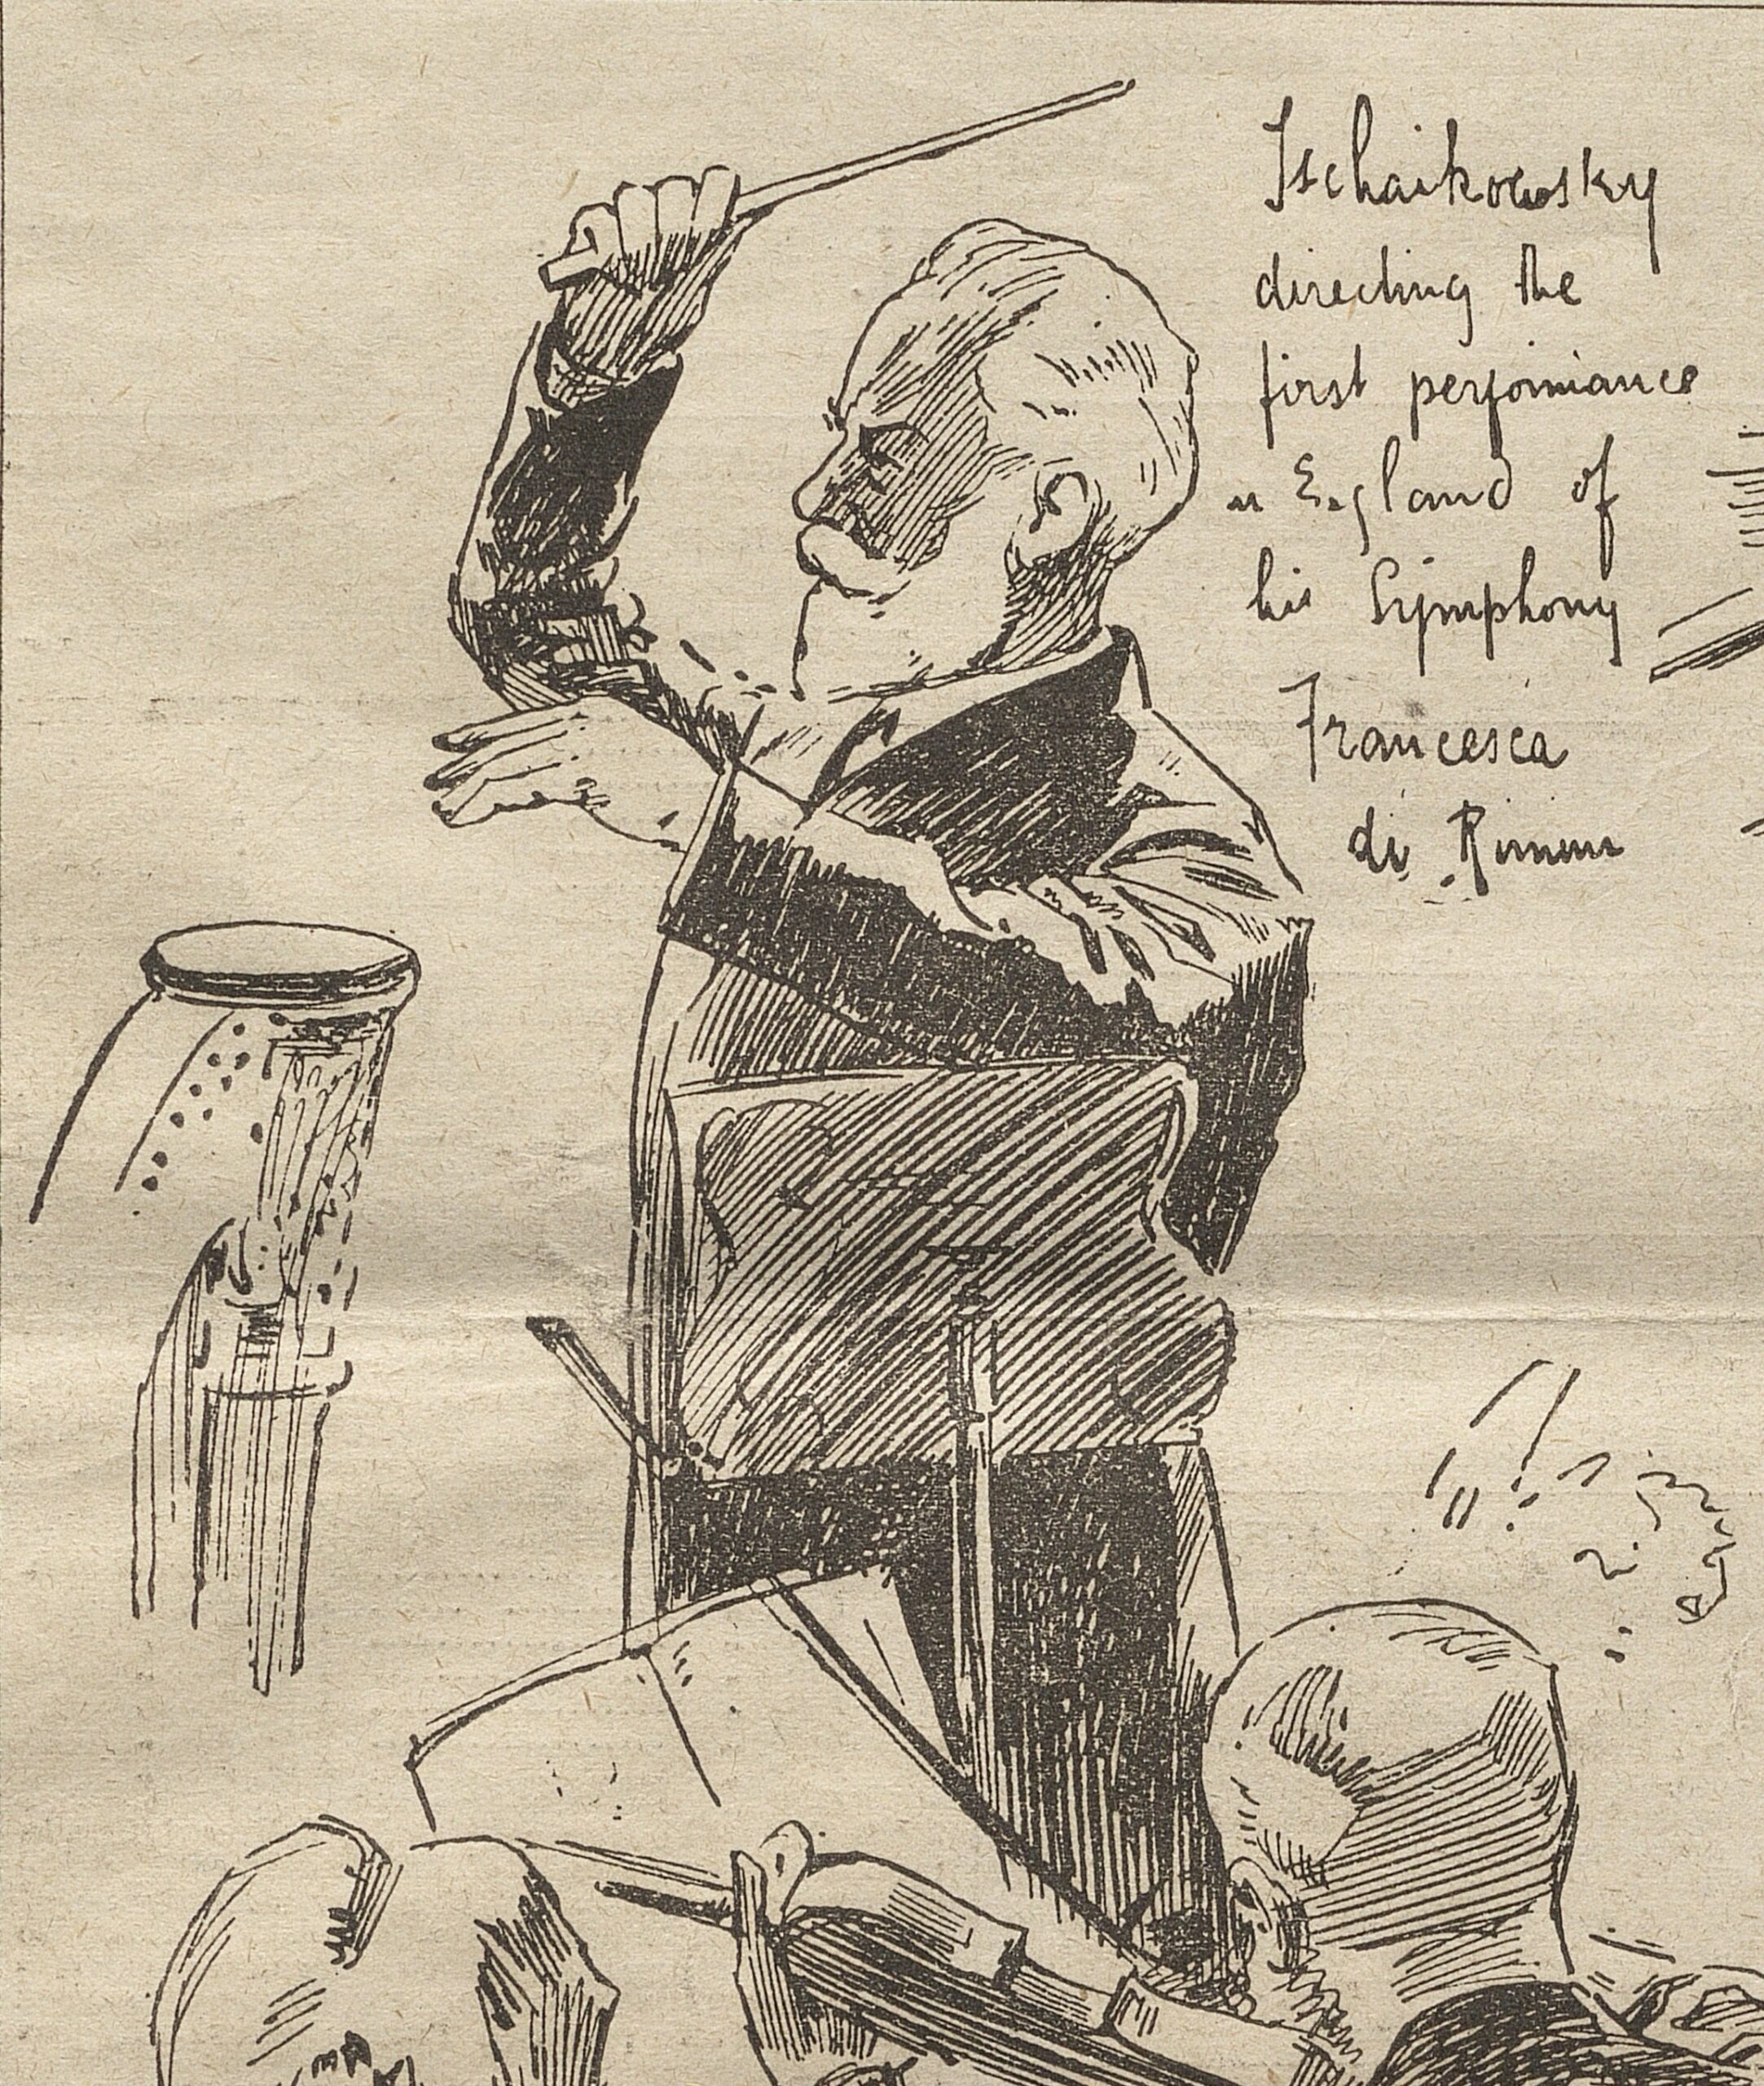 Tschaikowsky
directing the
first performance
in England of
his Symphony
Francesca
di Rimini